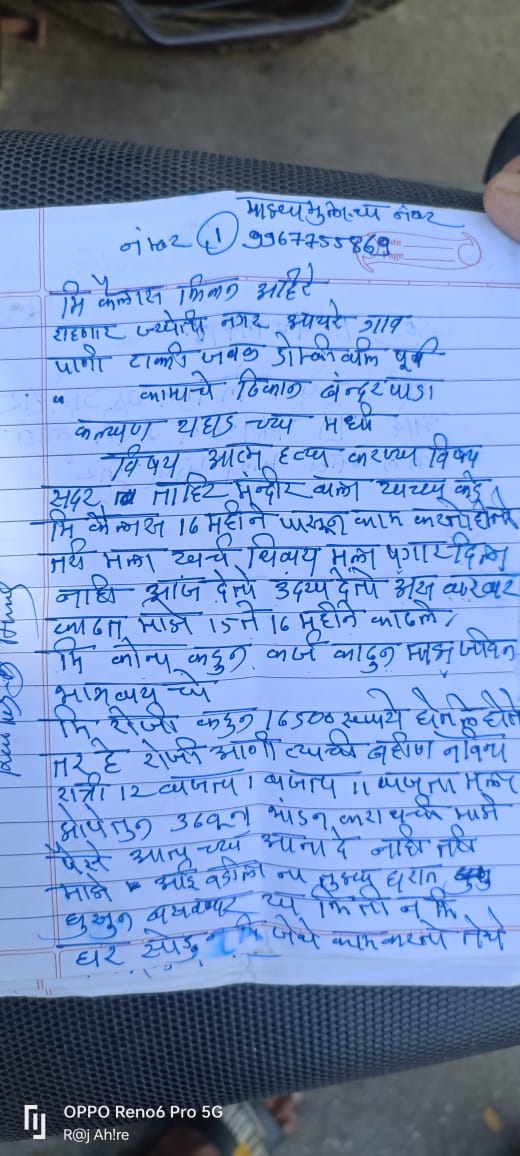 माझ्या मुलाच्या नंबर
नंबर 1 9967755869
मि कैलास मिलन अहिरे
राहणार ज्योती नगर आयरे गाव
पाणी टाकी जवळ डोंबीवली पूर्व
कामाचे ठिकान बंन्दरपाडा
कल्याण शहाड च्या मधी
विषय आत्म हत्य करण्या विषय
सदर ताहिर मन्दीर वाला याच्या कडे
मि कैलास 16 महीने पासून काम करतो होतो
तरी मला खर्ची शिवाय मला पगार दिला
नाही आज देतो उदया देतो असे करवर
काढत माझे 15 ते 16 महीने काढले
मि कोना कडुन कर्ज काढुन माझ जीवन
भागवायचो
मि रोजी कडुन 16500 रूपये घेतले होते
तर हे रोजी आणी त्याची बहीण नविन्य
रात्री 12 वाजता 1 वाजता 11 वाजता मला
झोपेतुन उठवून भांडन करायची माझे
पैसे आत्ताच्या आता दे नाही तरी
माझे आई वडीला ना तुझ्या घरात
घुसून
घर सोडुन मि जेथे काम करतो तेथे
OPPO Reno6 Pro 5G
R@j Ah!re